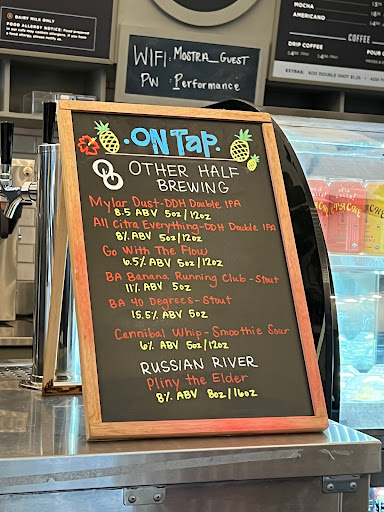 DAIRY MILK ONLY
FOOD ALLERGEN NOTICE: Food prepared
WIFI: MOSTRA_GUEST
PW: Performance
MOCHA
AMERICANO
COFFEE
DRIP COFFEE
POUR
EXTRAS: ADD DOUBLE SHOT
ON TAP.
OTHER HALF
BREWING
Mylar Dust-DDH Double IPA
8.5 ABV 5oz/12oz
All Citra Everything-DDH Double IPA
8% ABV 5oz/12oz
Go With The Flow
6.5% ABV 5oz/12oz
BA Banana Running Club-Stout
11% ABV 5oz
BA 40 Degrees-Stout
15.5% ABV 5oz
Cannibal Whip-Smoothie Sour
6% ABV 5oz/12oz
RUSSIAN RIVER
Pliny the Elder
8% ABV 8oz/16oz